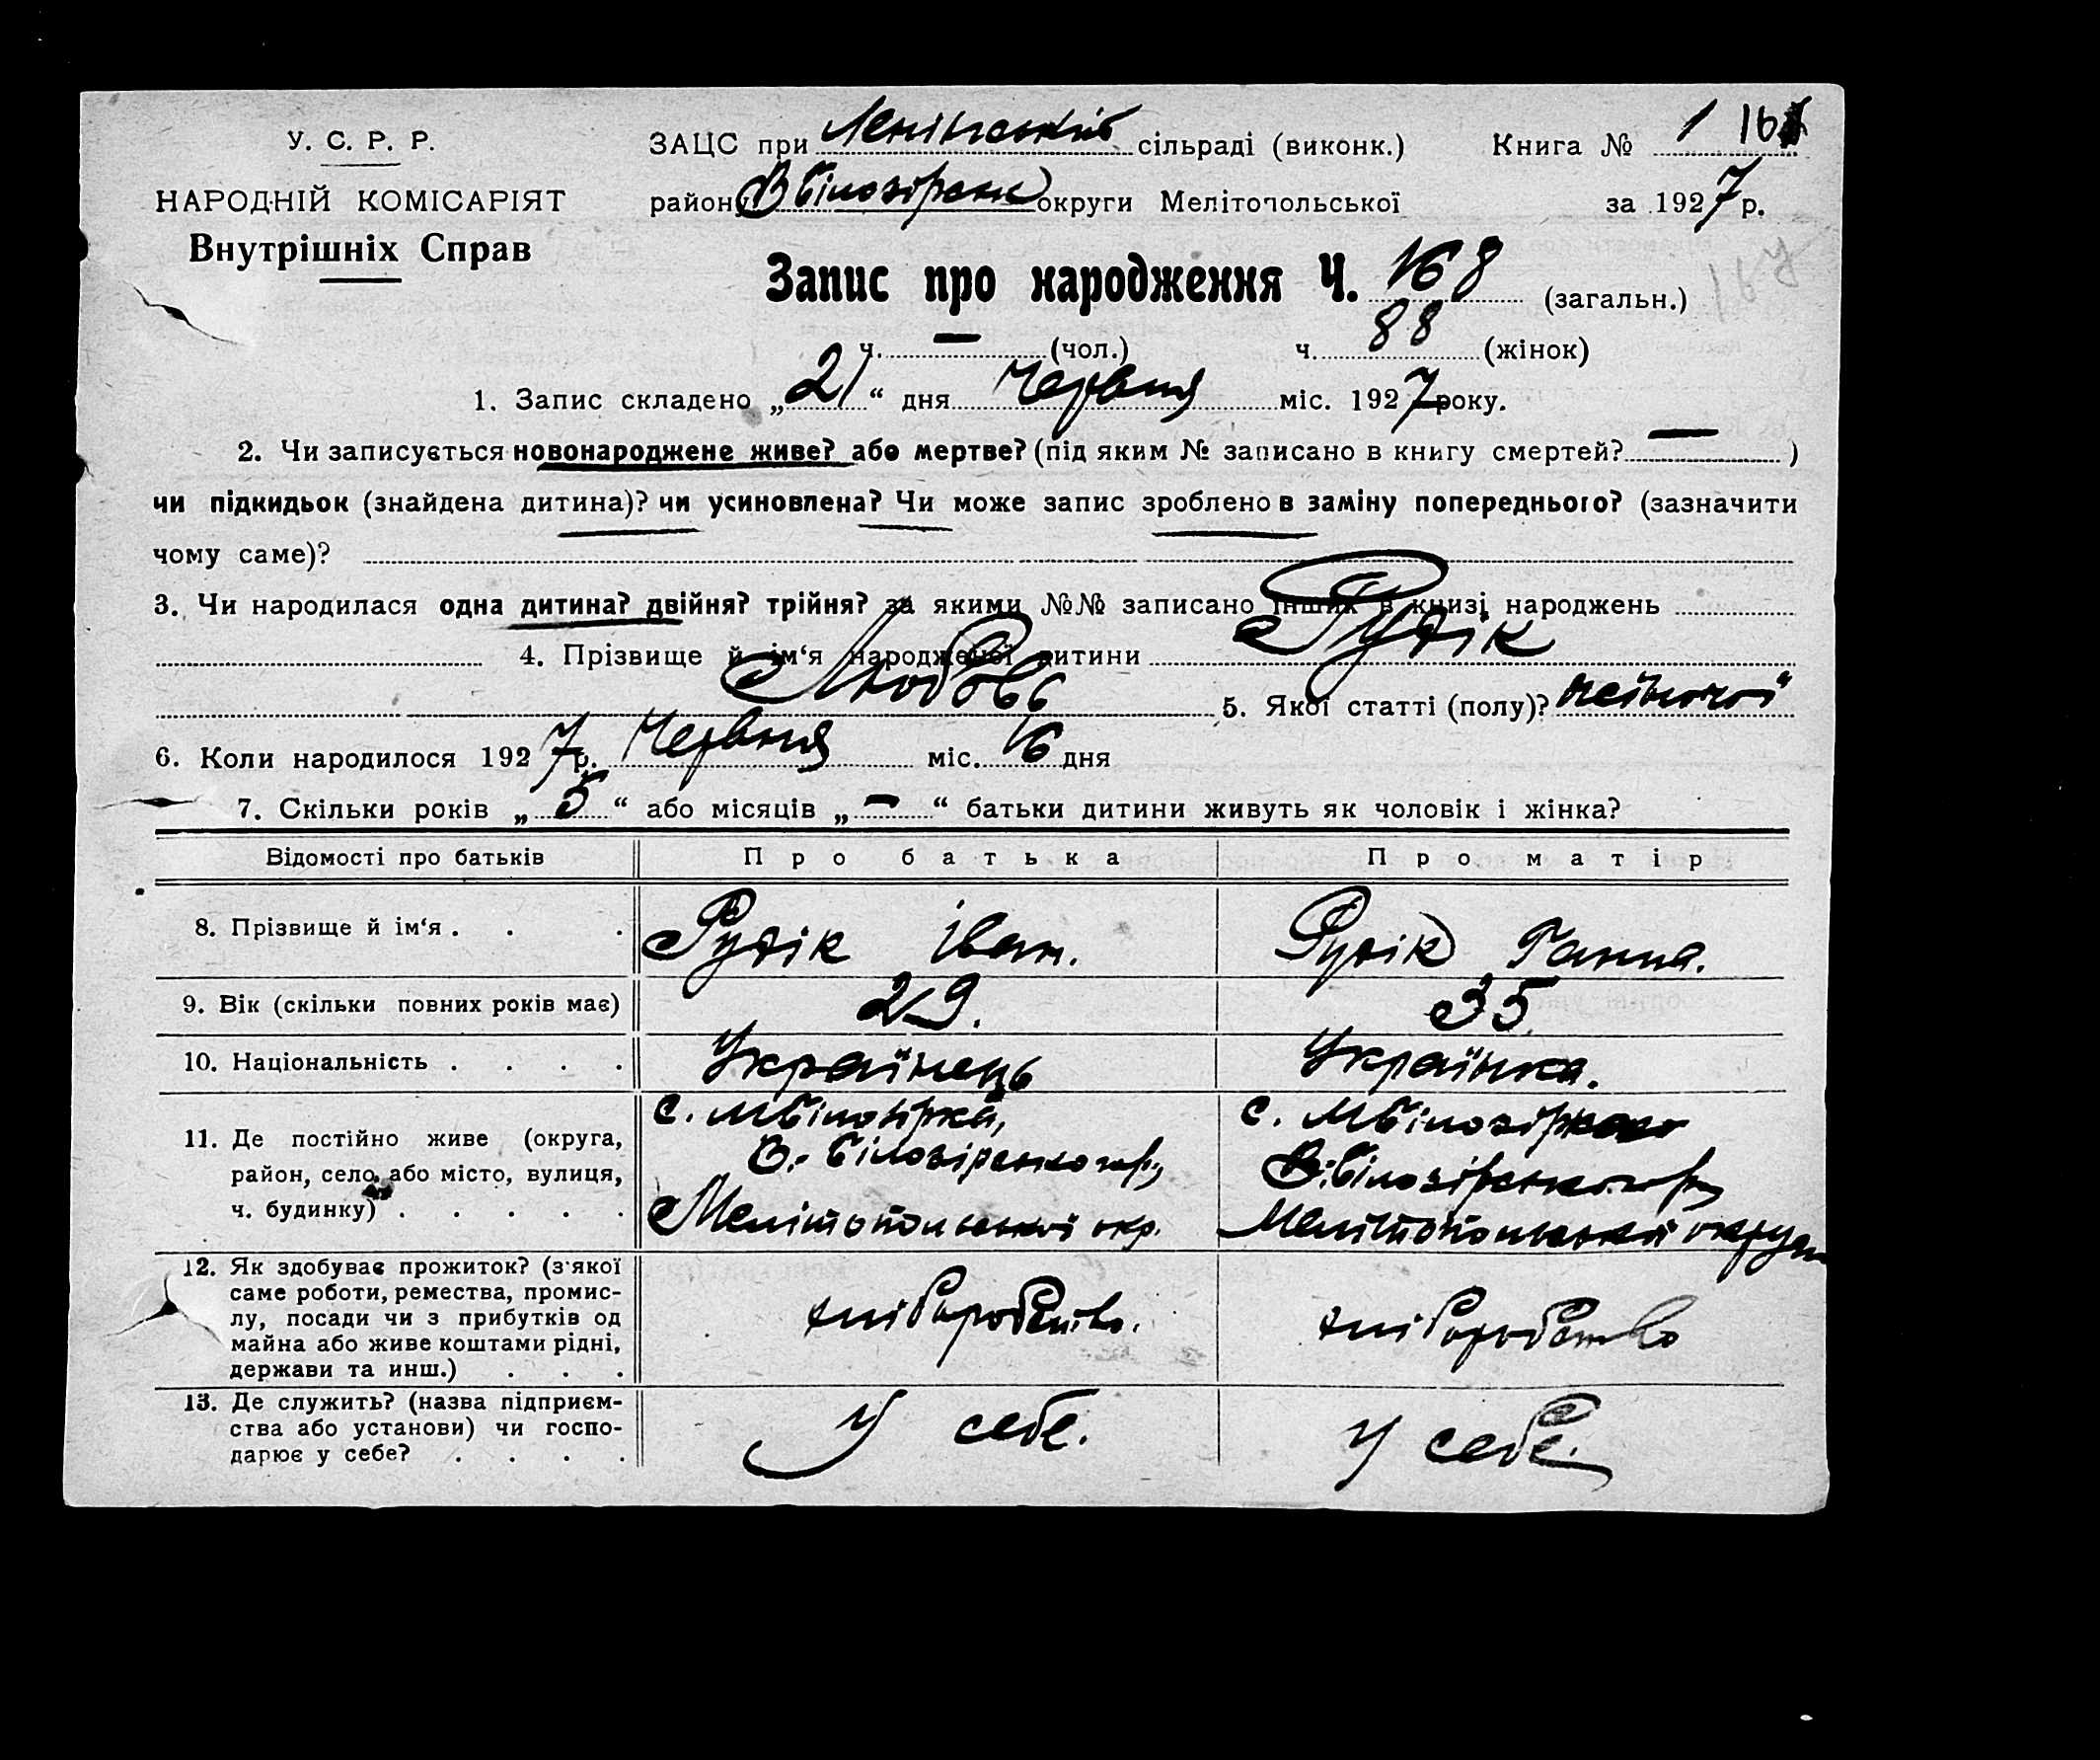 У. С. Р. Р.
НАРОДНІЙ КОМІСАРІЯТ
Внутрішніх Справ
ЗАЦС при Ленінській сільраді (виконк.) Книга № 1
району В Білозірськ округи Мелітопольської за 1927 р.
Запис про народження Ч. 168 (загальн.)
ч. — (чол.) ч. 88 (жінок)
1. Запис складено „21“ дня Червня міс. 1927 року.
2. Чи записується новонароджене живе? або мертве? (під яким № записано в книгу смертей? — )
чи підкидьок (знайдена дитина)? чи усиновлена? Чи може запис зроблено в заміну попереднього? (зазначити
чому саме)?
3. Чи народилася одна дитина? двійня? трійня? за якими №№ записано інших в книзі народжень
4. Прізвище й ім‘я народженої дитини Рудік
Любовь 5. Якої статті (полу)? жіночої
6. Коли народилося 1927 р. Червня міс. 16 дня
7. Скільки років „5“ або місяців „—“ батьки дитини живуть як чоловік і жінка?
Відомості про батьків Про батька Про матір
8. Прізвище й ім‘я . . . Рудік Іван. Рудік Ганна.
9. Вік (скільки повних років має) 29. 35
10. Національність . . . . Українець Українка.
11. Де постійно живе (округа, район, село або місто, вулиця, ч. будинку) . . . . . с. МБілозірка, с. МБілозірка
В.-Білозірського р, В.-Білозірського р
Мелітопольської окр. Мелітопольської округи
12. Як здобуває прожиток? (з‘якої
саме роботи, ремества, промис-
лу, посади чи з прибутків од
майна або живе коштами рідні,
держави та инш.) . . . хліборобство. хліборобство
13. Де служить? (назва підприєм-
ства або установи) чи госпо-
дарює у себе? . . . . У себе. У себе.